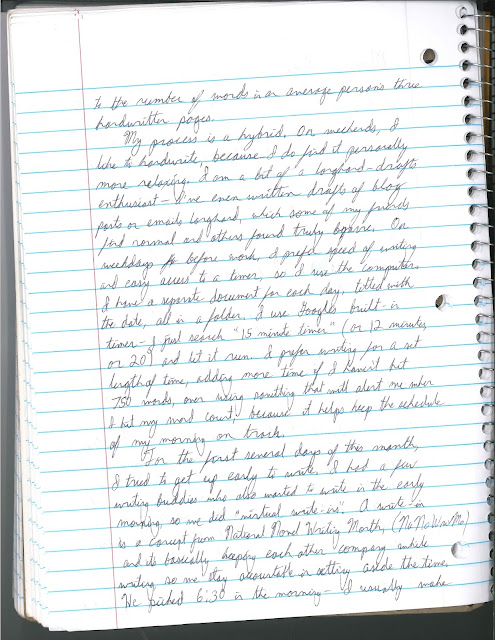 to the number of words in an average person's three
handwritten pages.
My process is a hybrid. On weekends, I
like to handwrite, because I do find it personally
more relaxing. I am a bit of a longhand-drafts
enthusiast - I've even written drafts of blog
posts or emails longhand, which some of my friends
find normal and others found truly bizarre. On
weekdays before work, I prefer speed of writing
and easy access to a timer, so I use the computer.
I have a separate document for each day, titled with
the date, all in a folder. I use Google's built-in
timer - I just search "15 minute timer" (or 12 minutes,
or 20) and let it run. I prefer writing for a set
length of time, adding more time if I haven't hit
750 words, over using something that will alert me when
I hit my word count, because it helps keep the schedule
of my morning on track.
For the first several days of this month,
I tried to get up early to write. I had a few
writing buddies who also wanted to write in the early
morning, so we did "virtual write-ins." A write-in
is a concept from National Novel Writing Month, (NaNoWriMo)
and its basically keeping each other company while
writing so we stay accountable in setting aside the time.
We picked 6:30 in the morning - I usually wake